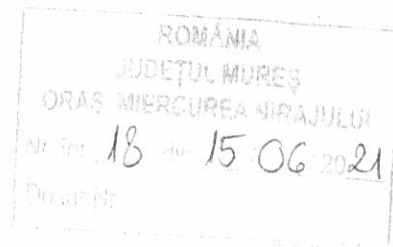 ROMÂNIA
JUDEŢUL MUREŞ
ORAŞ MIERCUREA NIRAJULUI
Nr. 18 din 15 06 2021
Dosar Nr